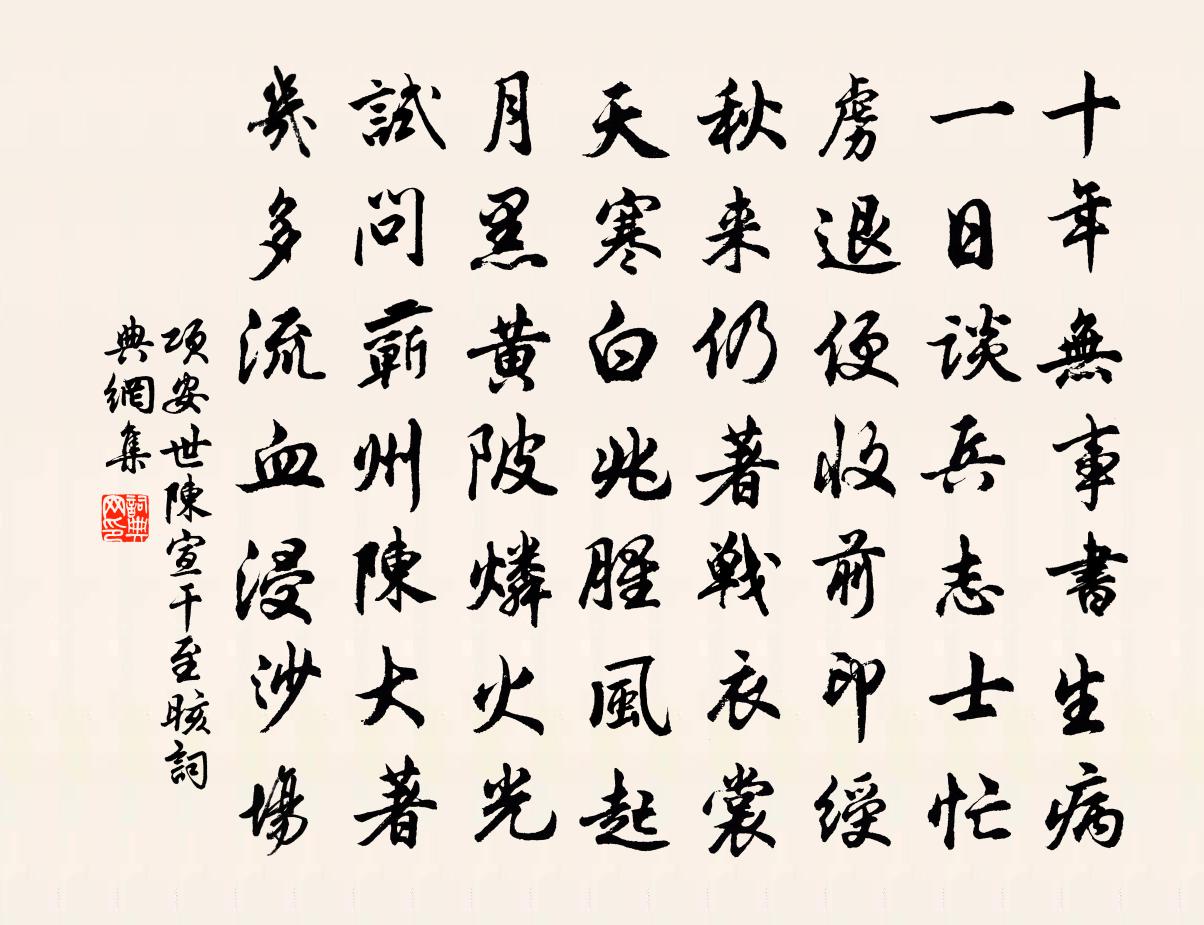 十年無事書生病
一日談兵志士忙
虜退便收前印綬
秋来仍著戰衣裳
天寒白兆腥風起
月黑黃陂燐火光
試問蘄州陳大著
幾多流血浸沙場
項安世陳宣干至晐詞
典網集
詞典網印